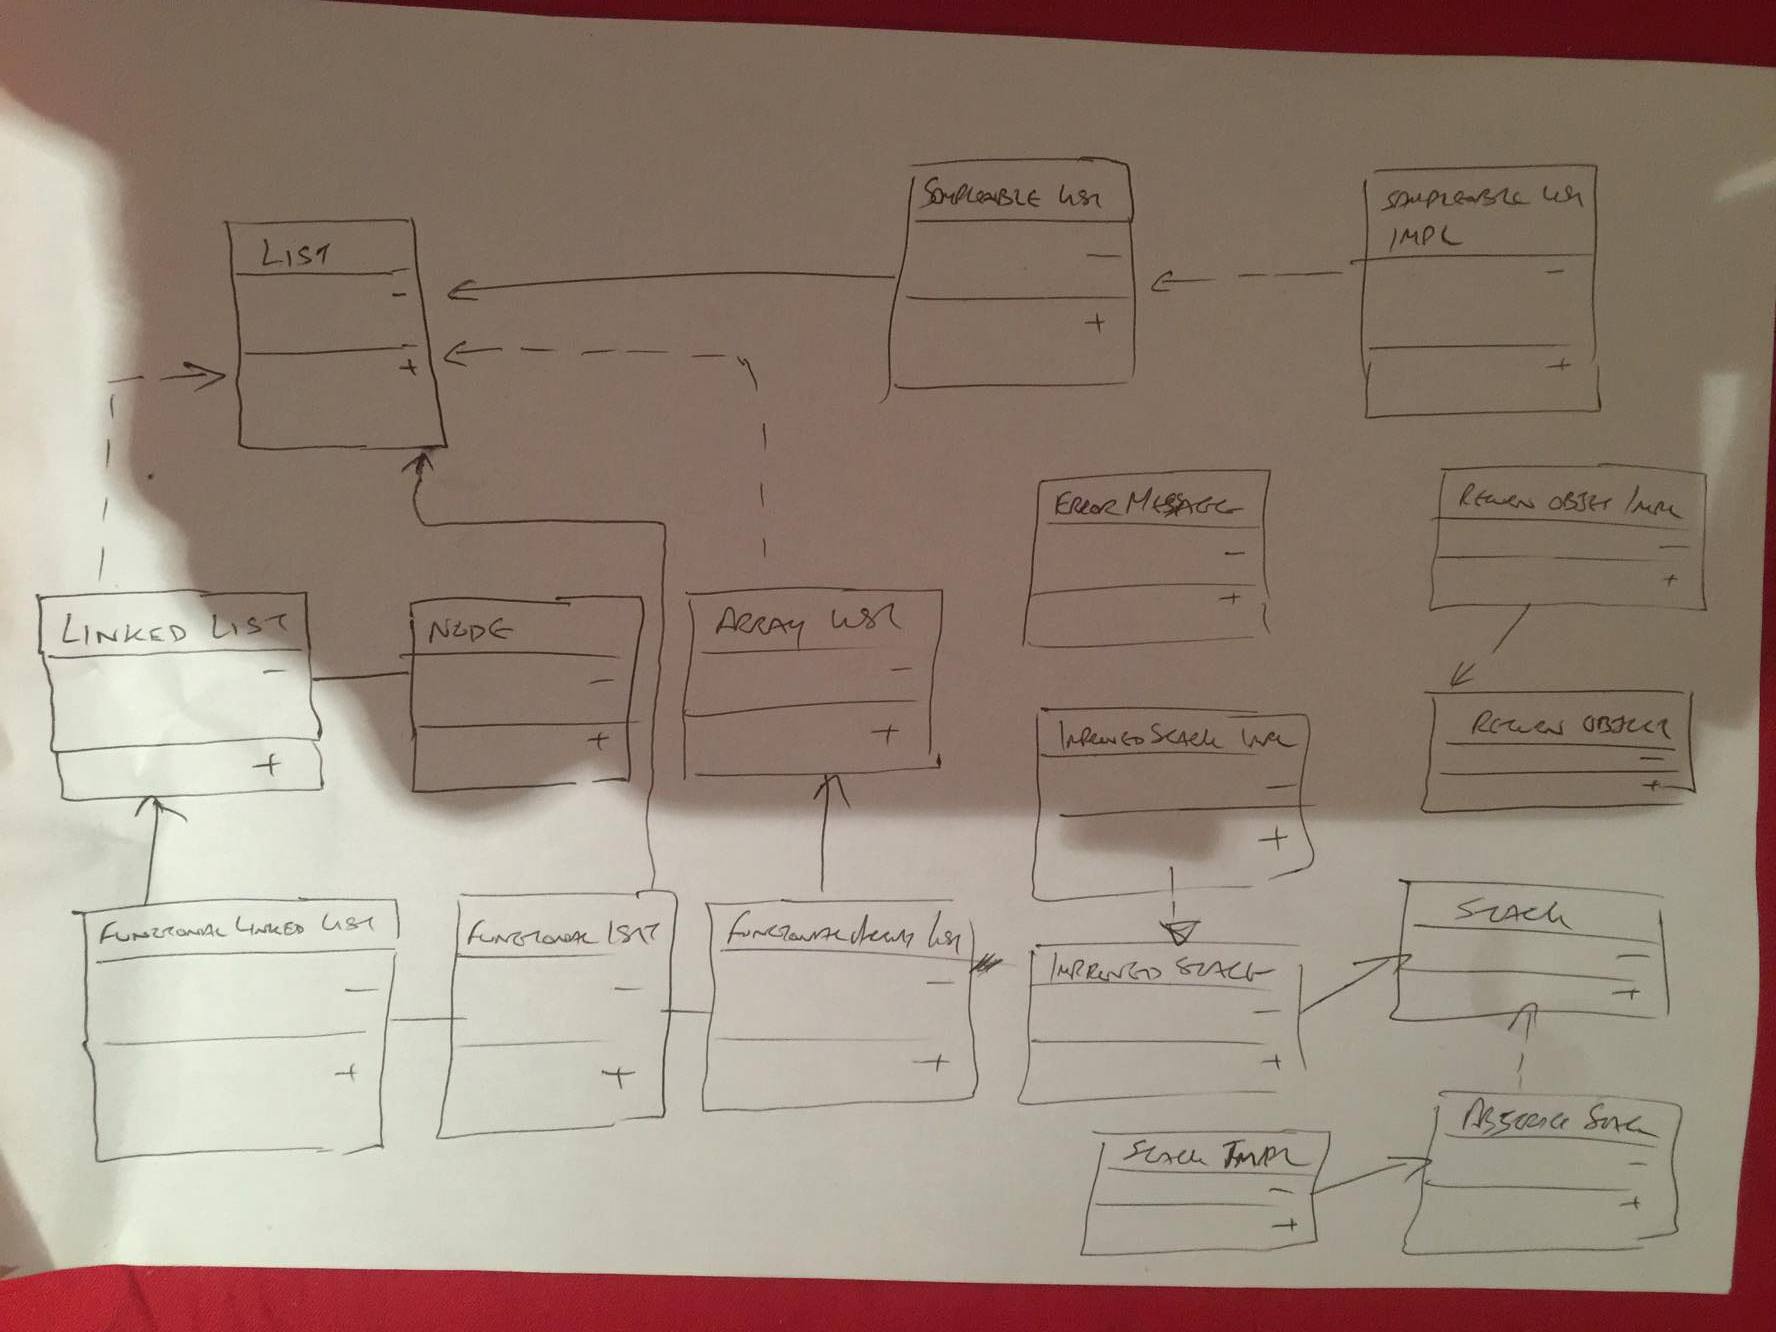 SAMPLEABLE LIST
SAMPLEABLE LIST
IMPL
LIST
-
+
-
+
-
+
ERROR MESSAGE
-
+
RETURN OBJECT IMPL
-
+
LINKED LIST
-
+
NODE
-
+
ARRAY LIST
-
+
IMPROVED STACK IMPL
-
+
RETURN OBJECT
-
+
FUNCTIONAL LINKED LIST
-
+
FUNCTIONAL LIST
-
+
FUNCTIONAL ARRAY LIST
-
+
IMPROVED STACK
-
+
STACK
-
+
STACK IMPL
-
+
ABSTRACT STACK
-
+